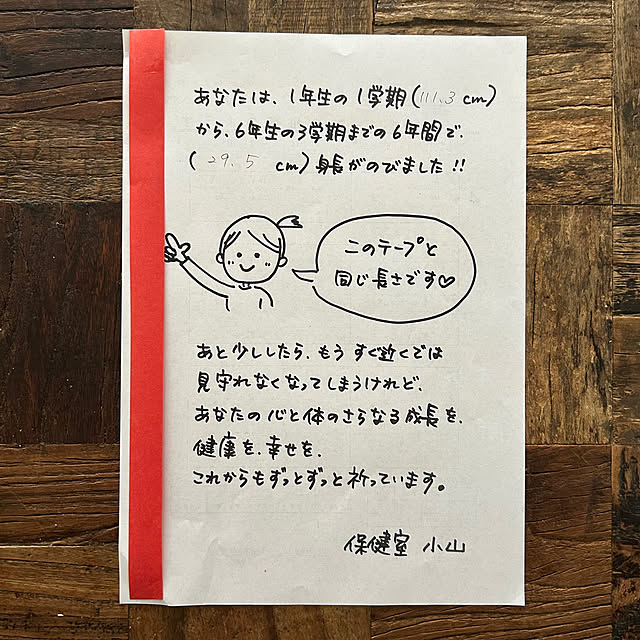 あなたは、1年生の1学期(111.3 cm)
から、6年生の3学期までの6年間で、
(29.5 cm)身長がのびました!!
このテープと
同じ長さです♡
あと少ししたら、もうすぐ近くでは
見守れなくなってしまうけれど、
あなたの心と体のさらなる成長を、
健康を、幸せを、
これからもずっとずっと祈っています。
保健室 小山